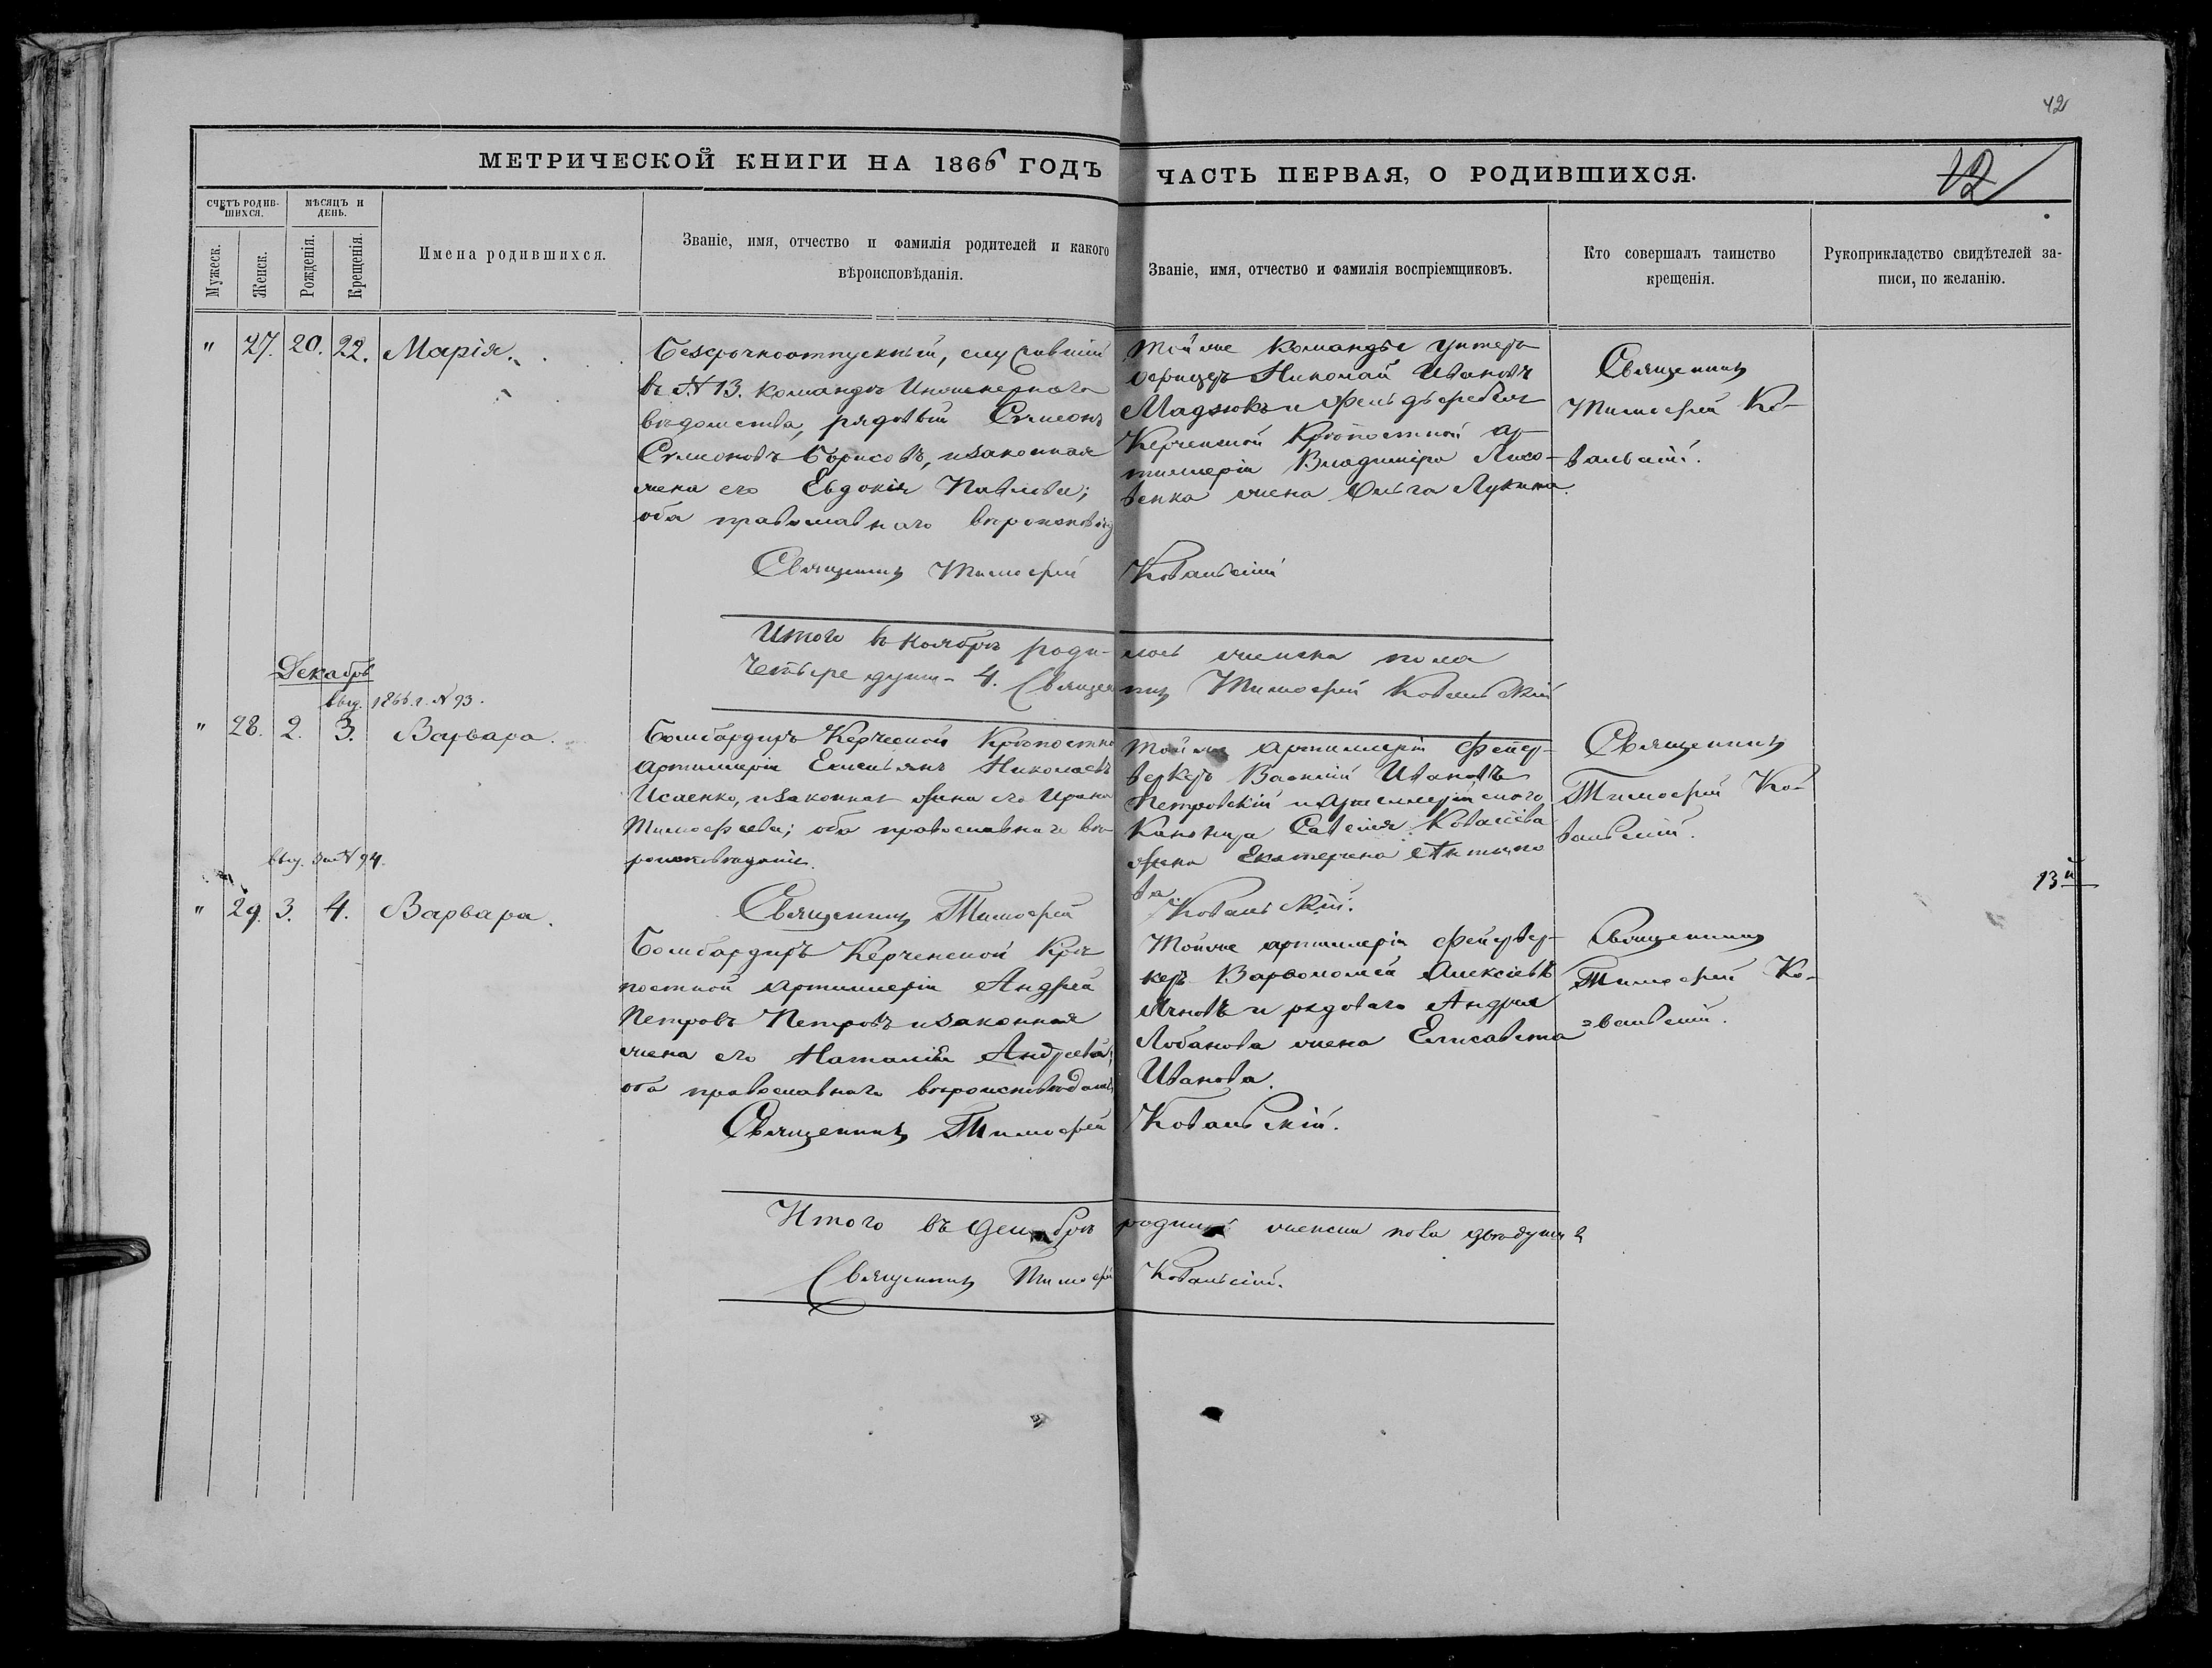 42
МЕТРИЧЕСКОЙ КНИГИ НА 1866 ГОДЪ
ЧАСТЬ ПЕРВАЯ, О РОДИВШИХСЯ.
12
СЧЕТЪ РОДИВ-
ШИХСЯ.
МѢСЯЦЪ И
ДЕНЬ.
Мужеск.
Женск.
Рожденія.
Крещенія.
Имена родившихся.
Званіе, имя, отчество и фамилія родителей и какого
вѣроисповѣданія.
Званіе, имя, отчество и фамилія воспріемщиковъ.
Кто совершалъ таинство
крещенія.
Рукоприкладство свидѣтелей за-
писи, по желанію.
" 27. 20. 22. Марія.
Безсрочноотпускный, служившій
въ № 13. командѣ Инженернаго
вѣдомства, рядовый Симеонъ
Симеоновъ Борисовъ, и законная
жена его Евдокія Павлова;
оба православнаго вѣроисповѣд
Той же команды унтеръ
офицеръ Николай Ивановъ
Мадзюкъ и
Керченской Крѣпостной ар-
тиллеріи Владиміра Лисо-
венка жена Ольга Лукина.
Священникъ
Тимофей Ко-
вальскій.
Священникъ Тимофей Ковальскій
Итого въ Ноябрѣ роди-лось женска пола
четыре души - 4. Священникъ Тимофей Ковальскій
Декабрь
выд. 1866. г. № 93.
" 28. 2. 3. Варвара.
Бомбардиръ Керченской Крѣпостно
Артиллеріи Емельянъ Николаевъ
Исаенко, и законная жена его Ирина
Тимофеева; оба православнаго вѣ-
роисповѣданія.
Той же артиллеріи фейер-
веркеръ Василій Ивановъ
Петровскій и Артиллерійскаго
Каноника Савелія Ковалева
жена Екатерина Антипо
ва
Священникъ
Тимофей Ко-
вальскій.
Священникъ Тимофей Ковальскій.
13й
выд. за № 94.
" 29. 3. 4. Варвара.
Бомбардиръ Керченской Крѣ
постной артиллеріи Андрей
Петровъ Петровъ и законная
жена его Наталія Андреева;
оба православнаго вѣроисповѣданія
Той же артиллеріи фейервер-
керъ Варѳоломей Алексѣевъ
и рядоваго Андрея
Лобанова жена Елисавета
Иванова.
Священникъ
Тимофей Ко-
вальскій.
Священникъ Тимофей Ковальскій.
Итого въ Декабрѣ родилось женска пола двѣ души 2
Священникъ Тимофей Ковальскій.